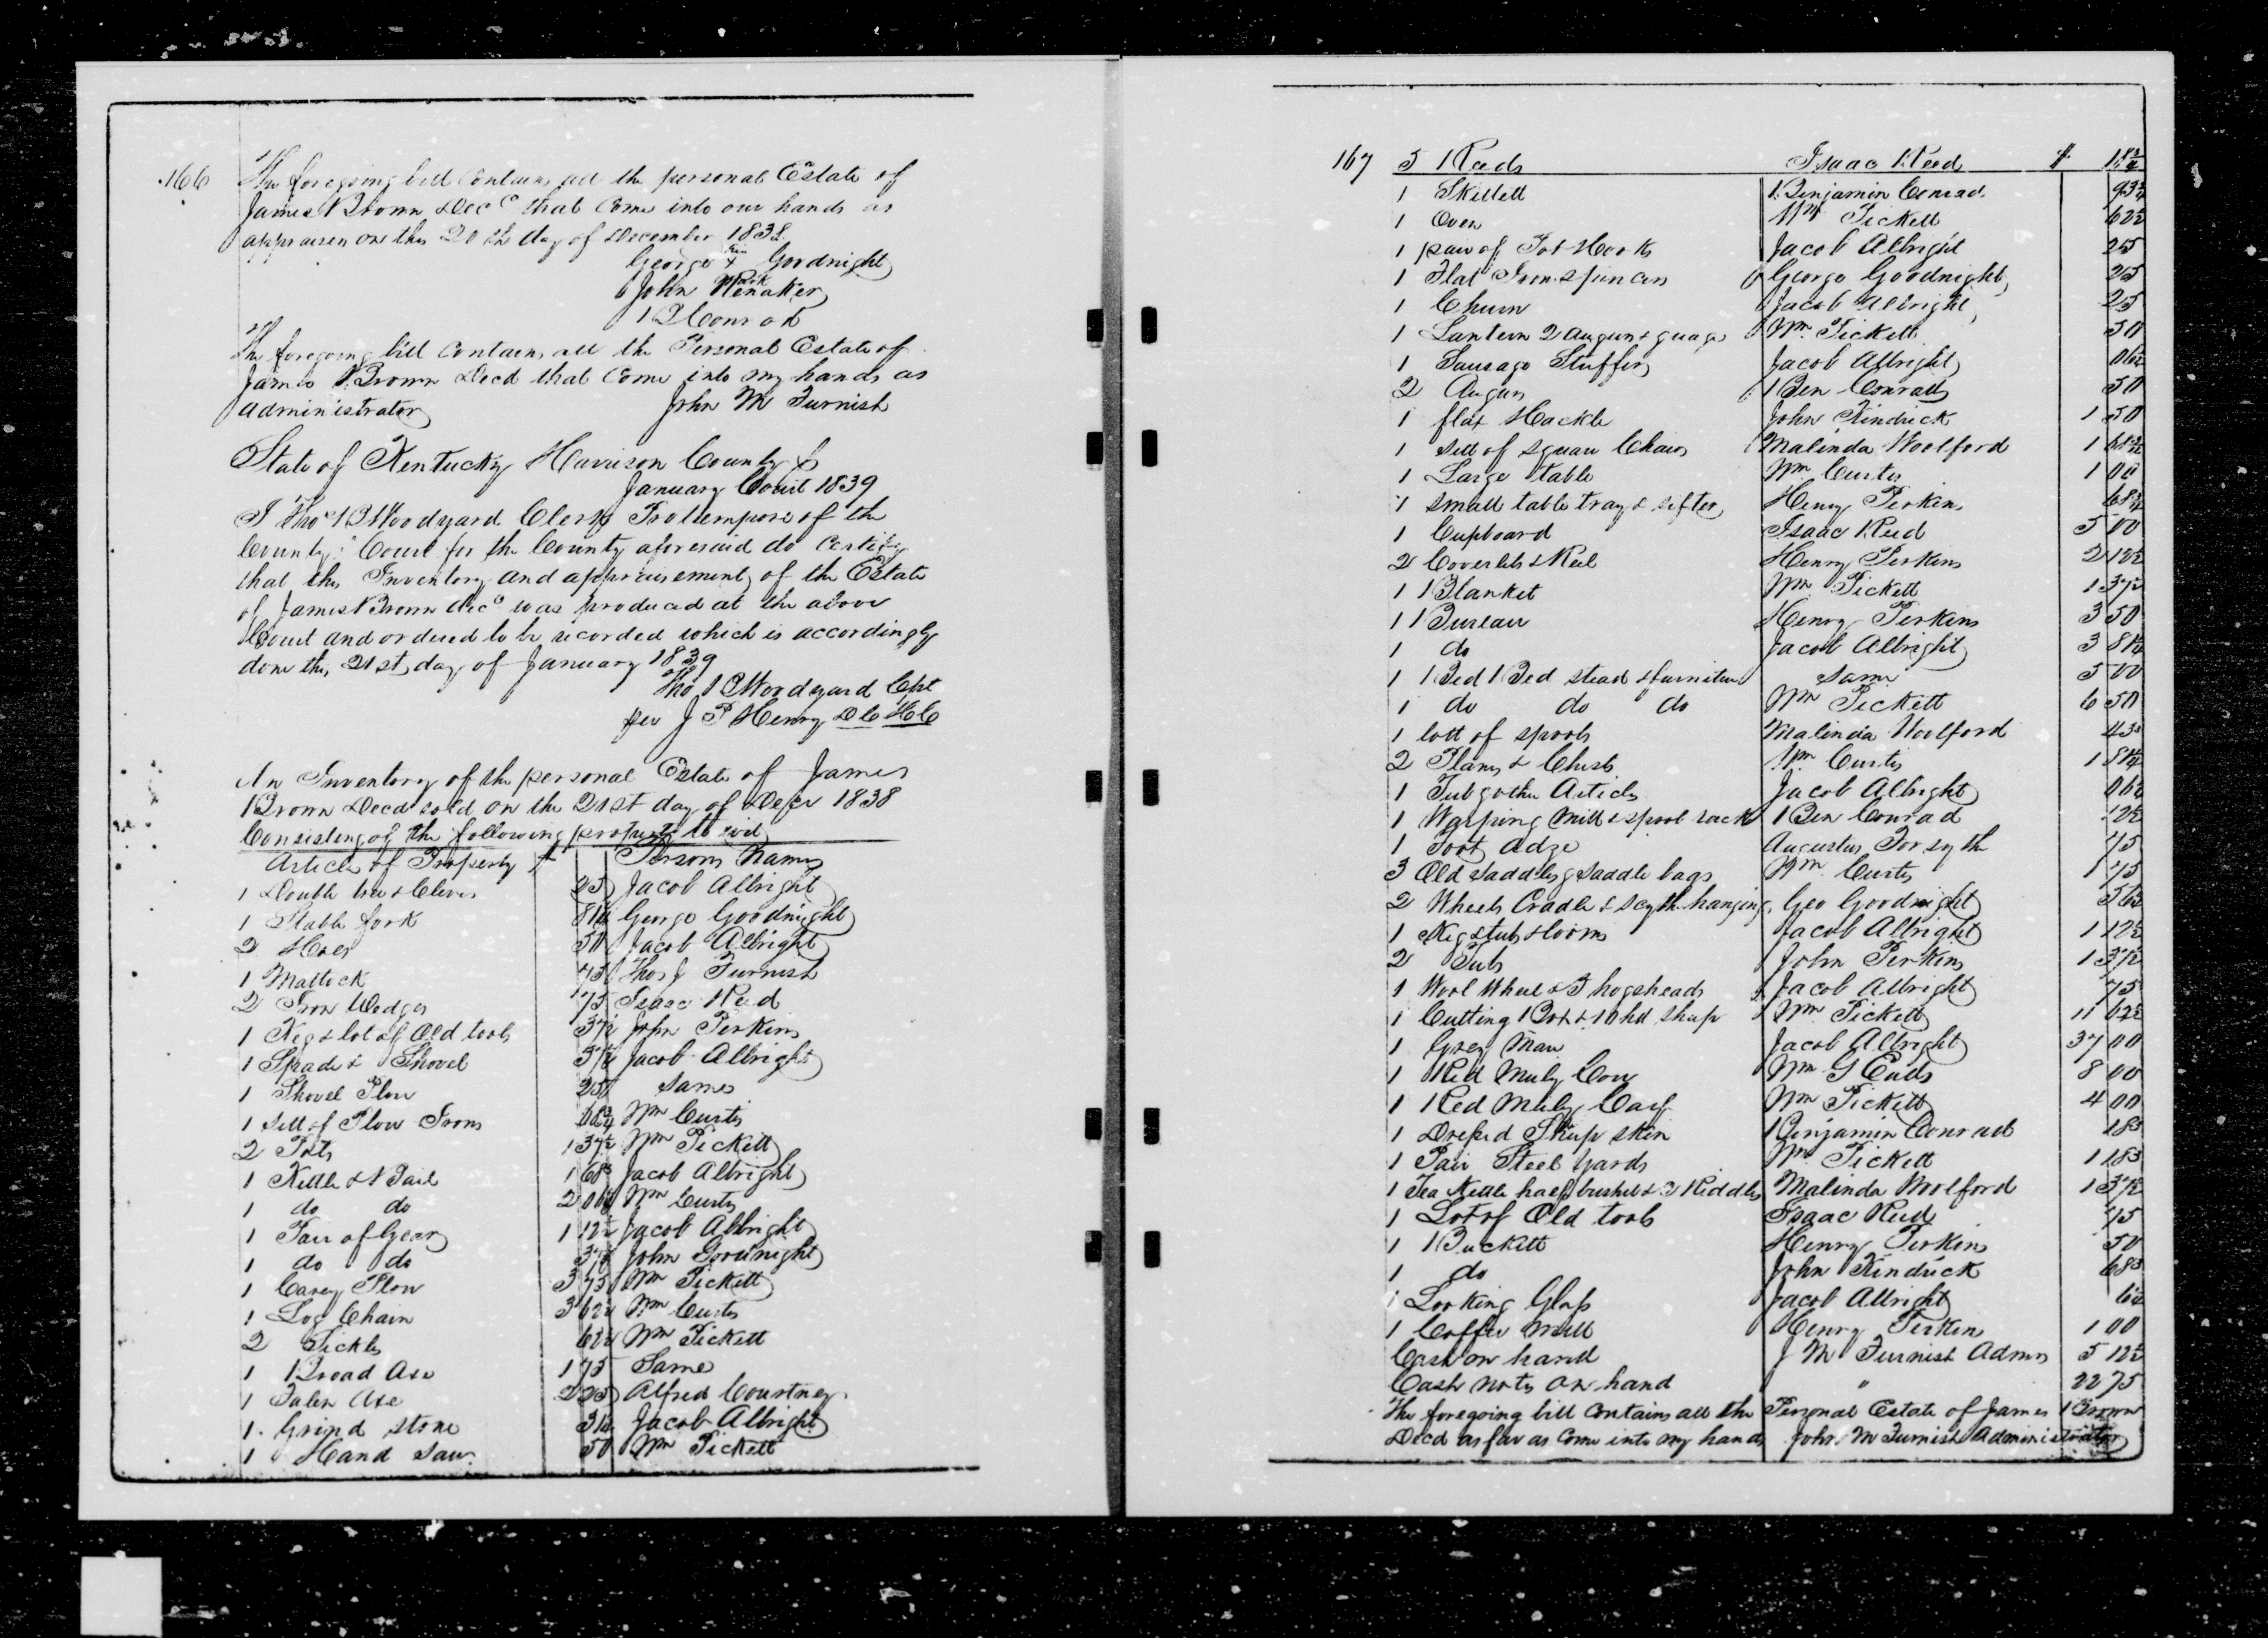 166
The foregoing bill contains all the personal Estate of
James Brown Decd that come into our hands as
appraisers on this 20th day of December 1838
his
George X Goodnight
mark
John Renaker
B Conrad
The foregoing bill contains all the Personal Estate of
James Brown Decd that come into my hands as
administrator John M Furnish
State of Kentucky Harrison County Sc
January Court 1839
I Thos B Woodyard Clerk Protempore of the
County Court for the County aforesaid do certify
that this Inventory and appraisement of the Estate
of James Brown decd was produced at the above
Court and ordered to be recorded which is accordingly
done this 21st day of January 1839
Tho B Woodyard Clpt
per J P Henry D C H C
An Inventory of the personal Estate of James
Brown Decd sold on the 21st day of Decr 1838
Consisting of the following property to wit
Articles of Property $ Persons Names
1 Double tree & Clevis 25 Jacob Albright
1 Stable fork 81¼ George Goodnight
2 Hoes 50 Jacob Albright
1 Mattock 75 Thos J Furnish
2 Iron Wedges 75 Isaac Reed
1 Keg & lot of Old tools 37½ John Perkins
1 Spade & Shovel Jacob Albright
1 Shovel Plow 25 Same
1 Sett of Plow Irons Wm Curtis
2 Pots 1 37½ Wm Pickett
1 Kettle & Pail 1 68¾ Jacob Albright
1 do do 2 06¼ Wm Curtis
1 Pair of Gears 1 12½ Jacob Albright
1 do do 37½ John Goodnight
1 Carey Plow 3 75 Wm Pickett
1 Log Chain 3 62½ Wm Curtis
2 Sickles 62½ Wm Pickett
1 Broad Axe 1 75 Same
1 Falen Axe 2 25 Alfred Courtney
1 Grind stone 31¼ Jacob Albright
1 Hand Saw 50 Wm Pickett
167
5 Reeds Isaac Reed $ 18¾
1 Skillett Benjamin Conrad 93¾
1 Oven Wm Pickett 62½
1 pair of Pot Hooks Jacob Albright 25
1 Flat Iron & pincers George Goodnight 25
1 Churn Jacob Albright 25
1 Lantern 2 Augurs & guage Wm Pickett 50
1 Sausage Stuffer Jacob Albright 06¼
2 Augurs Ben Conrad 50
1 flax Hackle John Kindrick 1 50
1 Sett of square Chairs Malinda Woolford 1
1 Large table Wm Curtis 1 00
1 small table tray & sifter Henry Perkins 68¾
1 Cupboard Isaac Reed 5 00
2 Coverlets & Reel Henry Perkins 2 12½
1 Blanket Wm Pickett 1 37½
1 Bureau Henry Perkins 3 50
1 do Jacob Albright 3 81¼
1 Bed Bed stead & furniture Same 5 00
1 do do do Wm Pickett 6 50
1 lott of spools Malinda Woolford 43¾
2 Planes & Chisels Wm Curtis 1 81¼
1 Tub & other Articles Jacob Albright 06¼
1 Warping Mill & spool rack Ben Conrad 12½
1 Foot adze Augustus Forsythe 75
3 Old Saddles & Saddle bags Wm Curtis 1 75
2 Wheels Cradle & scythe hanging Geo Goodnight 56¼
1 Keg & tub & loom Jacob Albright 1 12½
2 Tubs John Perkins 1 37½
1 Wool Wheel & 3 hogsheads Jacob Albright 75
1 Cutting Box & 10 hd sheep Wm Pickett 11 62½
1 Grey Mare Jacob Albright 37 00
1 Red Muly Cow Wm G Eads 8 00
1 Red Muly Calf Wm Pickett 4 00
1 Dressed Sheep skin Benjamin Conrad 18¾
1 Pair Steel yards Wm Pickett 1 18¾
1 Tea Kettle half bushel & 2 Riddles Malinda Woolford 1 37½
1 Lot of Old tools Isaac Reed 75
1 Buckett Henry Perkins 50
1 do John Kindrick 68¾
1 Looking Glass Jacob Albright 6¼
1 Coffee Mill Henry Perkins 1 00
Cash on hand J M Furnish Admr 5 12½
Cash notes on hand " 22 75
The foregoing bill contains all the Personal Estate of James Brown
Decd as far as come into my hands John M Furnish Administrator